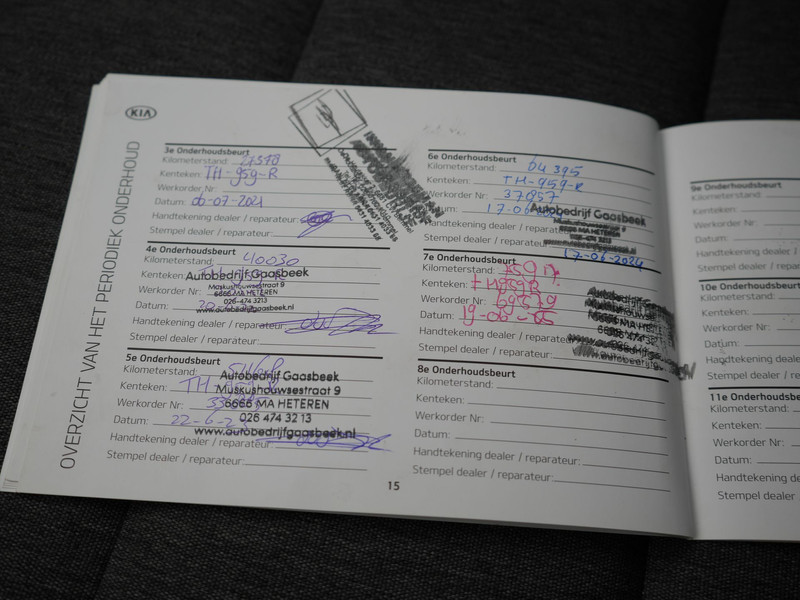 KIA
OVERZICHT VAN HET PERIODIEK ONDERHOUD
3e Onderhoudsbeurt
Kilometerstand:
Kenteken: TH-959-R
Werkorder Nr:
Datum: 06-07-2021
Handtekening dealer / reparateur:
Stempel dealer / reparateur:
4e Onderhoudsbeurt
Kilometerstand: 40030
Kenteken:
Autobedrijf Gaasbeek
Werkorder Nr:
Muskushouwsestraat 9
6666 MA HETEREN
026-474 3213
Datum:
www.autobedrijfgaasbeek.nl
Handtekening dealer / reparateur:
Stempel dealer / reparateur:
5e Onderhoudsbeurt
Kilometerstand:
Autobedrijf Gaasbeek
Kenteken: TH
Muskushouwsestraat 9
Werkorder Nr:
6666 MA HETEREN
Datum: 22-6-2
026 474 32 13
www.autobedrijfgaasbeek.nl
Handtekening dealer / reparateur:
Stempel dealer / reparateur:
6e Onderhoudsbeurt
Kilometerstand: 64395
Kenteken: TH-959-R
Werkorder Nr: 37857
Datum: 17-06
Autobedrijf Gaasbeek
6666 MA HETEREN
Handtekening dealer / reparateur:
Stempel dealer / reparateur: 17-06-2024
7e Onderhoudsbeurt
Kilometerstand:
Kenteken: TH959R
Werkorder Nr:
Datum: 19-06-
Handtekening dealer / reparateur:
Stempel dealer / reparateur:
8e Onderhoudsbeurt
Kilometerstand:
Kenteken:
Werkorder Nr:
Datum:
Handtekening dealer / reparateur:
Stempel dealer / reparateur:
15
9e Onderhoudsbeurt
Kilometerstand:
Kenteken:
Werkorder Nr:
Datum:
Handtekening dealer
Stempel dealer /
10e Onderhoudsbeu
Kilometerstand:
Kenteken:
Werkorder Nr:
Datum:
Handtekening dealer
Stempel dealer / re
11e Onderhoudsbe
Kilometerstand:
Kenteken:
Werkorder Nr:
Datum:
Handtekening dealer
Stempel dealer